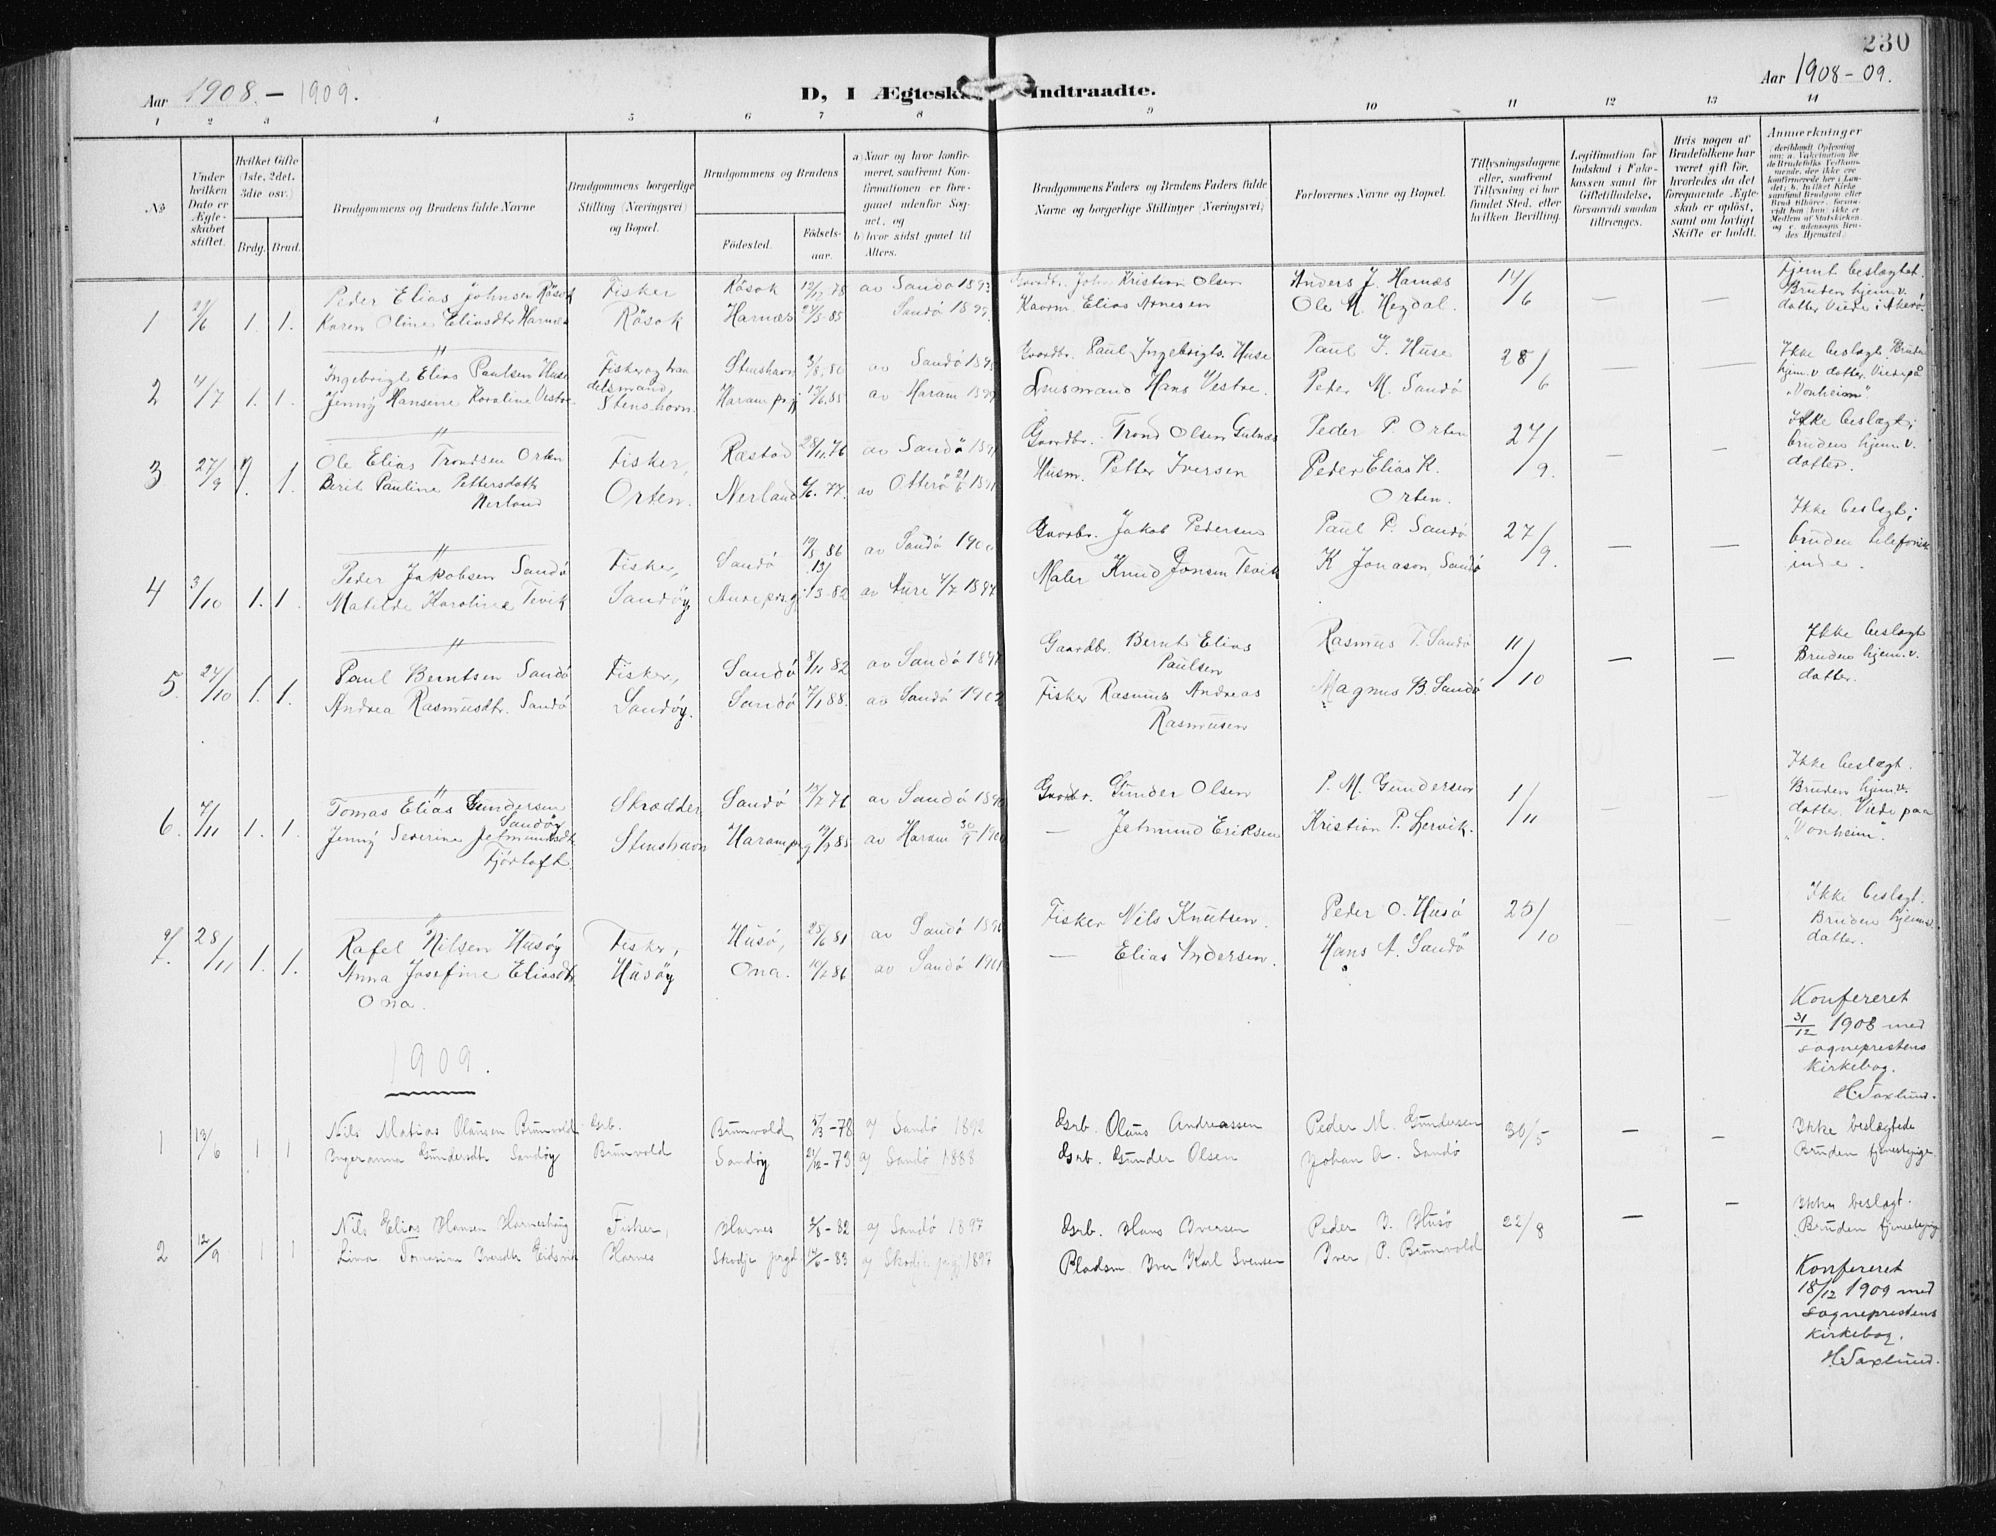 230
Aar 1908. - 1909.
D, I Ægtesk Indtraadte.
Aar 1908-09.
1 2 3 4 5 6 7 8 9 10 11 12 13 14
No
Under hvilken Dato er Ægteskabet stiftet.
Hvilket Gifte (1ste, 2det, 3die osv.)
Brdg. Brud.
Brudgommens og Brudens fulde Navne
Brudgommens borgerlige Stilling (Næringsvei) og Bopæl.
Brudgommens og Brudens
Födested. Födsels-aar.
a) Naar og hvor konfirmeret, saafremt Konfirmationen er foregaaet udenfor Sognet, og
b) hvor sidst gaaet til Alters.
Brudgommens Faders og Brudens Faders fulde Navne og borgerlige Stillinger (Næringsvei)
Forlovernes Navne og Bopæl.
Tillysningsdagene eller, saafremt Tillysning ei har fundet Sted, efter hvilken Bevilling.
Legitimation for Indskud i Enkekassen samt for Giftetilladelse, forsaavidt saadan tiltrænges.
Hvis nogen af Brudefolkene har været gift før, hvorledes da det foregaaende Ægteskab er opløst, samt om lovligt Skifte er holdt.
Anmærkninger
Peder Elias Johnsen Røsok Fisker Røsok 12/12 78 av Sandø 1893 Gaardbr. John Kristian Olsen Anders J. Harnæs 14/6 Fjernt beslægtet.
1 21/6 1. 1. Karen Oline Eliasdtr Harnæs Røsok Harnæs 27/5 85 Sandø 1899. Kaarm. Elias Arnesen Ole M. Hegdal. — — Bruden hjem.v. datter. Viede i Akerø.
"
Ingebrigt Elias Paulsen Huse Fisker og handelsmand, Stenshavn 3/8. 80 av Sandø 1895 Gaardbr. Paul Ingebrigts. Huse Paul I. Huse 28/6 Ikke beslægt. Bruden
2 4/7 1. 1. Jenny Hansine Karoline Vestre Stenshavn. Haram prgj 12/6. 85 av Haram 1899 Husmand Hans Vestre. Peder M. Sandø — — hjem.v datter. Viede på "Vonheim".
"
Ole Elias Trondsen Orten Fisker, Ræstad 28/11. 76 av Sandø 1891 Gaardbr. Trond Olsen Gulnæs Peder P. Orten 27/9. Ikke beslægt;
3 27/9 1. 1. Berit Pauline Pettersdatter Nerland Orten. Nerland 6/6. 77. av Otterø 21/6 1891 Husm. Petter Iversen Peder Elias K. Orten. — — bruden hjem.v. datter.
"
Peder Jakobsen Sandø Fisker, Sandø 19/5 86 av Sandø 1900 Gaardbr. Jakob Pedersen Paul P. Sandø 27/9. Ikke beslægt;
4 3/10 1. 1. Matilde Karoline Tevik Sandøy Aure prsgj. 13/3-82 av Aure 4/7 1897 Maler Knud Jonsen Tevik K Jonason Sandø — — bruden telefonistinde.
"
Paul Berntsen Sandø Fisker, Sandø 8/11 82 av Sandø 1897 Gaardbr. Bernt Elias Paulsen Rasmus T. Sandø 11/10 Ikke beslægt
5. 24/10 1. 1. Andrea Rasmusdtr. Sandø Sandøy. Sandø 7/1 88. av Sandø 1902 Fisker Rasmus Andreas Rasmussen Magnus B. Sandø — — Bruden hjem.v. datter.
"
Tomas Elias Gundersen Sandøy Skrædder Sandø 19/7 76 av Sandø 1890 Gaardbr. Gunder Olsen P. M. Gundersen 1/11 Ikke beslægt.
6. 7/11 1. 1. Jenny Severine Jetmundsdt. Fjørtoft. Stenshavn Haram prg 19/9 85 av Haram 30/9 1900 — Jetmund Eriksen Kristian P. Lervik. — — Bruden hjem.v. datter. Viede paa "Vonheim".
"
Rafel Nilsen Husøy Fisker, Husø, 28/6 81 av Sandø 1896 Fisker Nils Knutsen. Peder O. Husø 25/10 Ikke beslægt.
7. 28/11 1. 1. Anna Josefine Eliasdt. Ona. Husøy Ona. 10/2 86 av Sandø 1901 — Elias Andersen. Hans A. Sandø — — Bruden hjemv. datter.
Konfereret 31/12 1908 med sogneprestens kirkebog.
H Saxlund.
1909.
Nils Matias Olausen Brunvold Grb. Brunvold 5/3-78 af Sandø 1892 Grb. Olaus Andreassen Peder M. Gundersen 30/5 Ikke beslægtede
1 13/6 1 1 Ingeranna Gundersdtr Sandøy Brunvold Sandøy 21/12-73 af Sandø 1888 Grb. Gunder Olsen Johan A. Sandø — — Bruden tjenestepige
Nils Elias Hansen Harneshaug Fisker, Harnes 2/8-82 af Sandø 1897 Grb. Hans Iversen Peder I. Husø 22/8 — — Ikke beslægt.
2 12/9 1 1 Lina Tomasine Iversdtr Eidsvik Harnes Skodje prgd 14/6-83 af Skodje prgj 1897 Pladsm. Iver Karl Svensen Iver P. Brunvold Bruden tjenestepige
Konfereret 18/12 1909 med sogneprestens kirkebog.
H Saxlund.